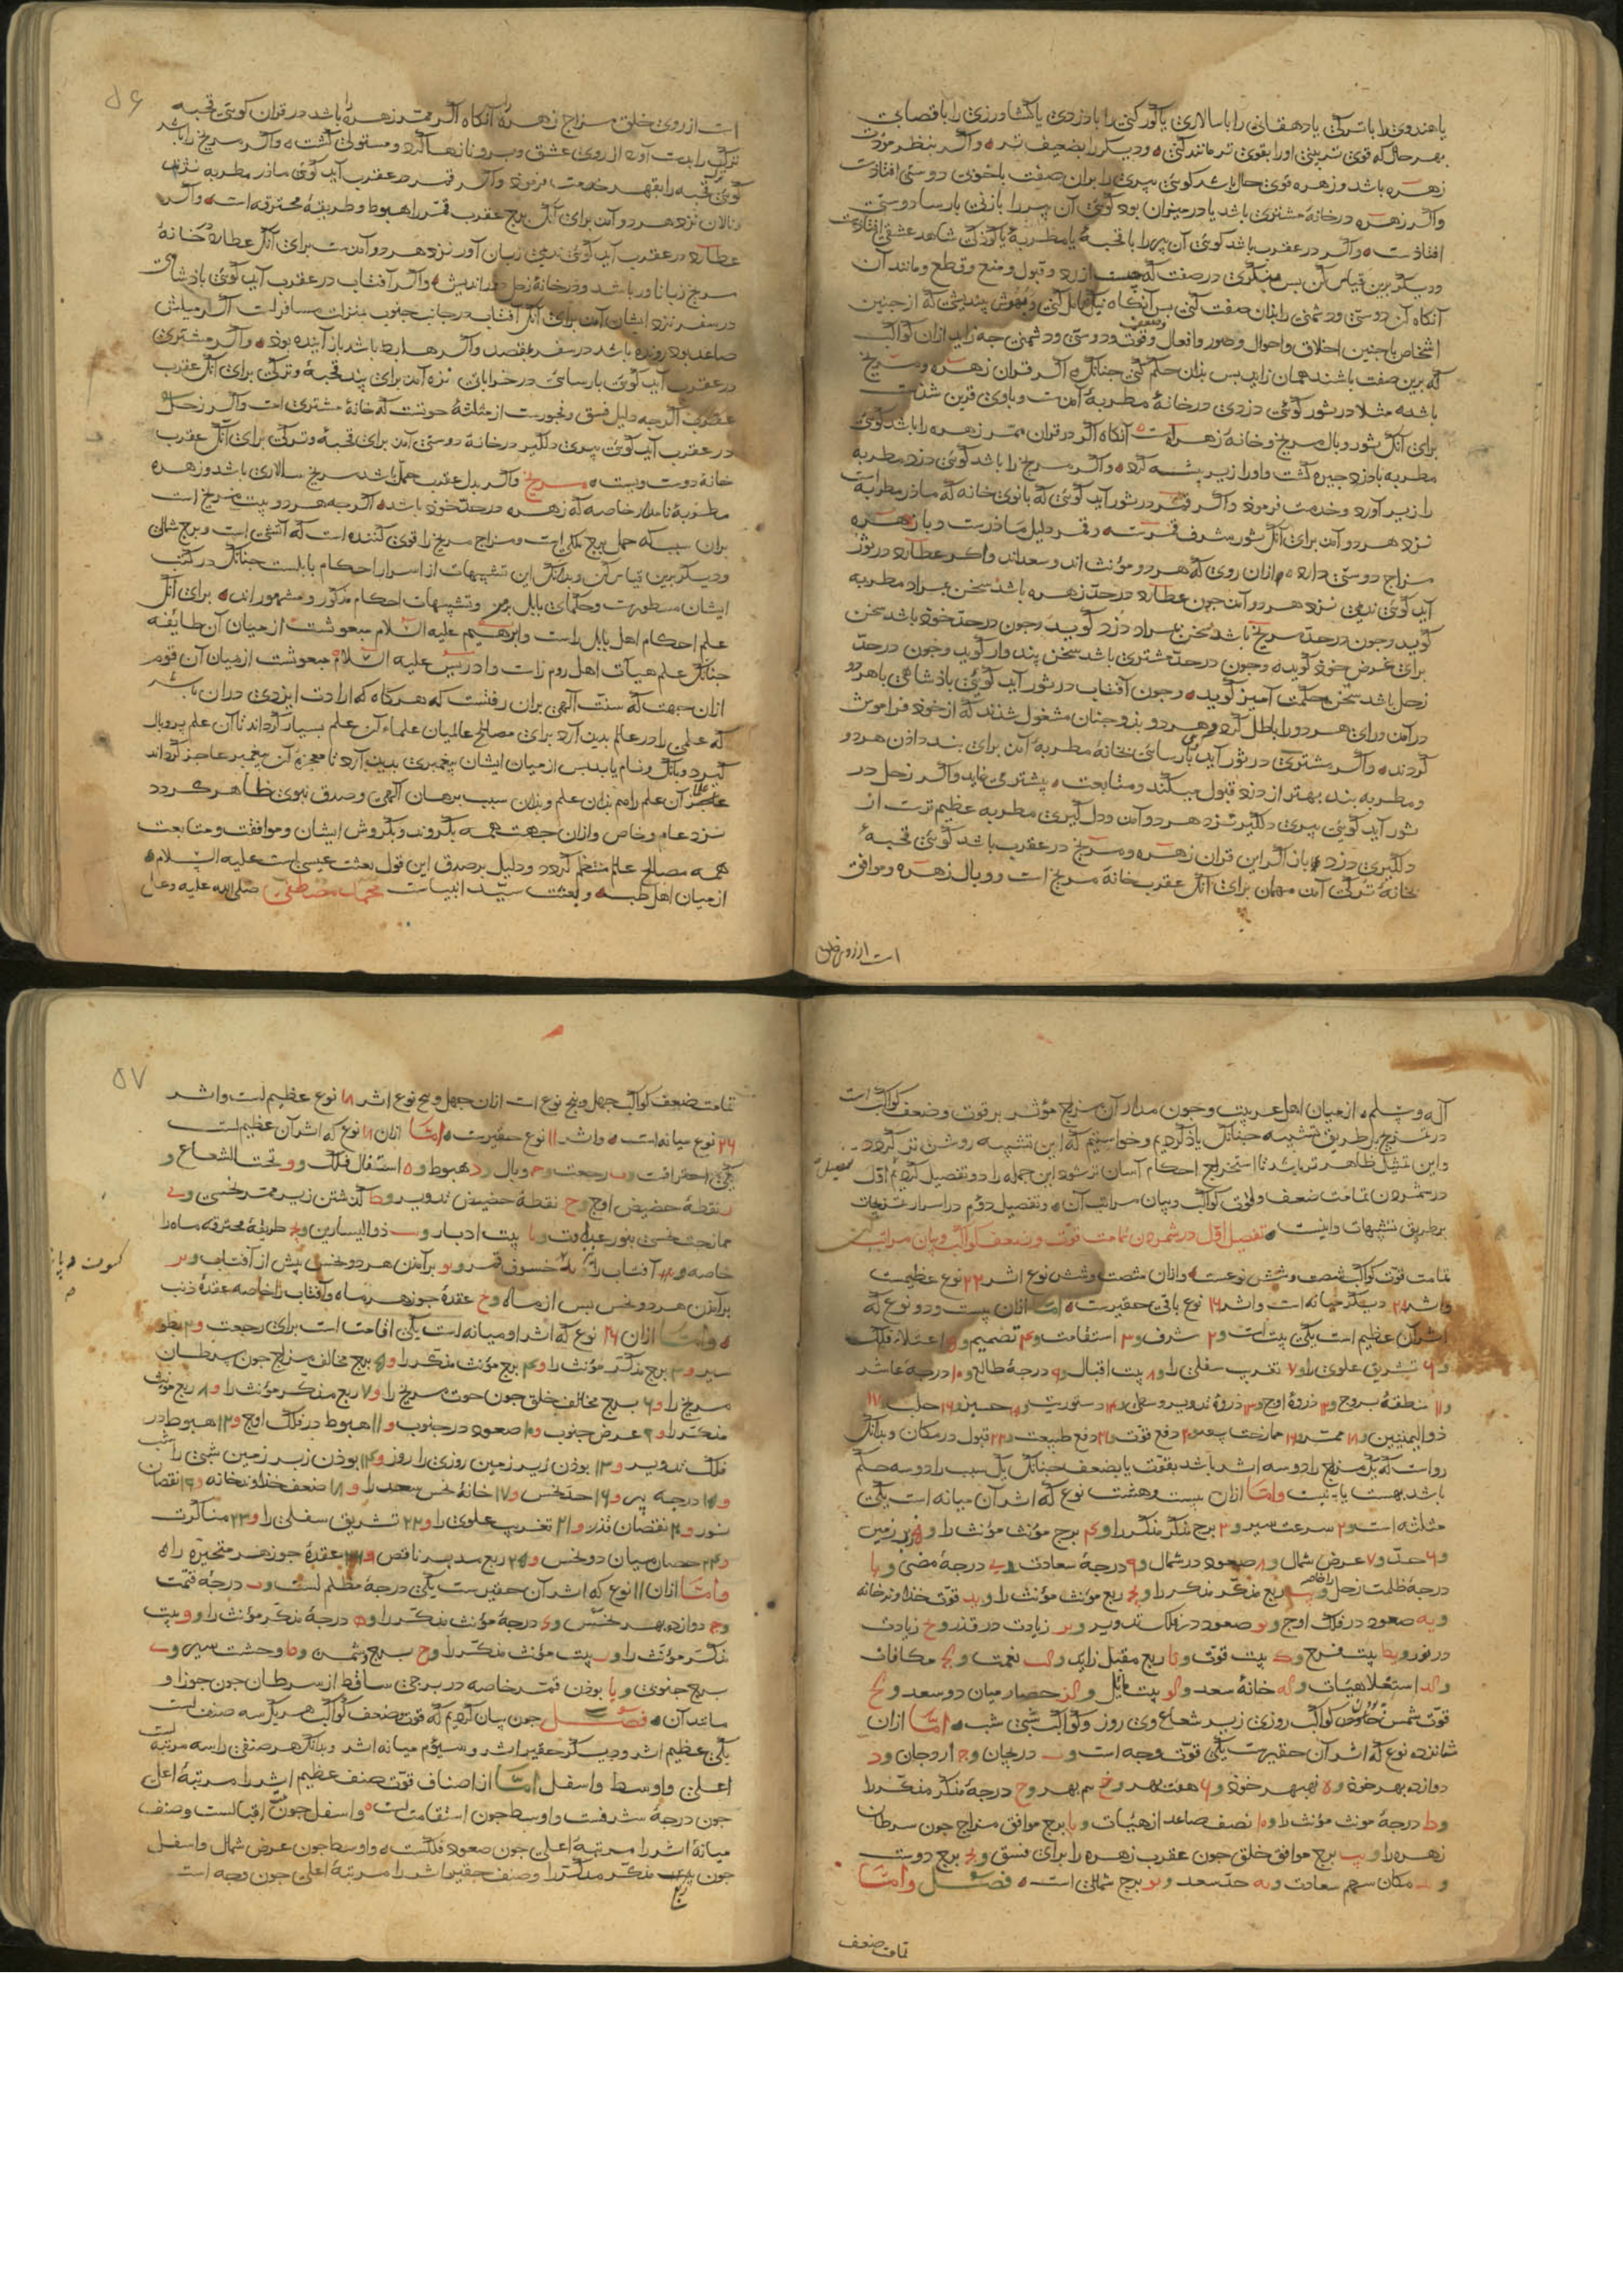 یا هندوی را با ترکی یا دهقانی را با سالاری یا کورکنی را با دزدی یا کشاورزی را با قصابی
بهر حال که قوی تر بینی او را بقوی تر مانند کنی و دیکر را بضعیف تر واکر بنظر مودت
زهره باشد و زهره قوی حال باشد کوئی پیری را بران صفت با خوذی دوستی افتاذست
واکر زهره در خانهٔ مشتری باشد یا در میزان بود کوئی آن پیر را با زنی بارسا دوستی
افتاذست واکر در عقرب باشد کوئی آن پیر را با قحبهٔ یا مطربهٔ یا کوذکی شاهد عشقی افتاذست
ودیکر برین قیاس کن بس منکری در صفت که چیست از رد و قبول و منع و قطع و مانند آن
آنکاه آن دوستی و دشمنی را بذان صفت کنی بس آنکاه نیک تامل کنی و بهوش بیندیشی که از جنین
اشخاص با جنین اخلاق و احوال و صور و افعال و قوت و ضعف و دوستی و دشمنی جه زاید ازان کواکب
که برین صفت باشند همان زاید بس بذان حکم کنی جنانک اکر قران زهره و مریخ
باشد مثلا در ثور کوئی دزدی در خانهٔ مطربهٔ آمدست و با وی قرین شذست
برای آنک ثور وبال مریخ و خانهٔ زهره است آنکاه اکر در قران ممر زهره را باشد کوئی
مطربه با دزد جیره کشت و او را زیر پشه کرد واکر مریخ را باشد کوئی دزد مطربه
را زیر آورد و خدمت فرمود واکر قمر در ثور آید کوئی که بانوی خانه که ماذر مطربه است
نزد هر دو آمد برای آنک ثور شرف قمرست و قمر دلیل ماذرست و با زهره
مزاج دوستی دارد و ازان روی که هر دو مؤنث اند و سعداند واکر عطارد در ثور
آید کوئی ندیمی نزد هر دو آمد جون عطارد در حد زهره باشد سخن بمراد مطربه
کوید و جون در حد مریخ باشد سخن بمراد دزد کوید و جون در حد خوذ باشد سخن
برای غرض خوذ کوید و جون در حد مشتری باشد سخن پند وار کوید و جون در حد
زحل باشد سخن حکمت آمیز کوید و جون آفتاب در ثور آید کوئی باذشاهی با هر دو
در آمد و رای هر دو را باطل کرد و هر دو بذو جنان مشغول شدند که از خوذ فراموش
کردند واکر مشتری در ثور آید بارسائی بخانهٔ مطربهٔ آمد برای بند داذن هر دو
و مطربه بند بهتر از دزد قبول میکند و متابعت بیشتر می نماید واکر زحل در
ثور آید کوئی پیری دلکیر نزد هر دو آمد و دل کیری مطربه عظیم ترست از
دلکیری دزد باز اکر این قران زهره و مریخ در عقرب باشد کوئی قحبهٔ
بخانهٔ ترکی آمد مهمان برای آنک عقرب خانهٔ مریخ است و وبال زهره و موافق
است از روی خلق
۵۶
است از روی خلق مزاج زهره را آنکاه اکر ممر زهره را باشد در قران کوئی قحبه
ترک را بدست آورد از روی عشق و بر و نازها کرد و مستولی کشت واکر مریخ را باشد
کوئی ترک قحبه را بقهر خدمت فرموذ واکر قمر در عقرب آید کوئی ماذر مطربه نژند
و نالان نزد هر دو آمد برای آنک برج عقرب قمر را هبوط و طریقهٔ محترقه است واکر
عطارد در عقرب آید کوئی ندیمی زبان آور نزد هر دو آمدست برای آنک عطارد خانهٔ
مریخ زبان آور باشد و در خانهٔ زحل دور اندیش واکر آفتاب در عقرب آید کوئی باذشاهی
در سفر نزد ایشان آمد برای آنک آفتاب در جانب جنوب بمنزلت مسافرست اکر میلش
صاعد بود رونده باشد در سفر بمقصد واکر هابط باشد باز آینده بود واکر مشتری
در عقرب آید کوئی بارسائی در خراباتی نزد آمد برای پند قحبهٔ و ترکی برای آنک عقرب
عطوی اکرجه دلیل فسق و فجورست از مثلثهٔ حوتست که خانهٔ مشتری است واکر زحل
در عقرب آید کوئی پیری دلکیر در خانهٔ دوستی آمد برای قحبهٔ و ترکی برای آنک عقرب
خانهٔ دوست ویست مریخ واکر بدل عقرب حمل باشد مریخ سالاری باشد و زهره
مطربهٔ نامدار خاصه که زهره در حد خوذ باشد اکرجه هر دو بیت مریخ است
بدان سبب که حمل برج ملکی است و مزاج مریخ را قوی کننده است که آتشی است و برج شمالی
و دیکر برین قیاس کن و بدانک این تشبیهات از اسرار احکام بابلست جنانک در کتب
ایشان مسطورست و حکمای بابل برمز و تشبیهات احکام مذکور و مشهور اند برای آنک
علم احکام اهل بابل راست و ابرهیم علیه السلام مبعوثست از میان آن طایفه
جنانک علم هیآت اهل روم راست و ادریس علیه السلام مبعوثست از میان آن قوم
ازان جهت که سنت الهی بران رفتست که هرکاه که ارادت ایزدی دران باشد
که علمی را در عالم بدید آرد برای مصالح عالمیان علماء آن علم بسیار کرداند تا آن علم پر و بال
کیرد و بانک و نام یابد بس از میان ایشان پیغمبری بدید آرد تا معجزهٔ آن پیغمبر عاجز کرداند
علماء آن علم را هم بذان علم و بذان سبب برهان الهی و صدق نبوی ظاهر کردد
نزد عام و خاص و ازان جهت همه بکروند و بکروش ایشان و موافقت و متابعت
همه مصالح عالم منتظم کردد و دلیل بر صدق این قول بعثت عیسی است علیه السلام
از میان اهل طب و بعثت سید انبیاست محمد مصطفی صلی الله علیه وعلی
آله وسلم از میان اهل عربیت و جون مدار آن مزاج مؤثر بر قوت و ضعف کواکب است
در مزج بطریق تشبیه جنانک یاذ کردیم و خواستیم که این تشبیه روشن تر کردد
و این تمثیل ظاهر تر باشد تا استخراج احکام آسان تر شود این جمله را دو تفصیل کردیم اول
در شمردن تمامت ضعف و قوت کواکب و بیان مراتب آن و تفصیل دوم در اسرار تمزیجات
بر طریق تشبیهات و اینست تفصیل اول در شمردن تمامت قوت و ضعف کواکب و بیان مراتب
تمامت قوت کواکب شصت و شش نوعست و ازان شصت و شش نوع اثر ۲۲ نوع عظیمست
و اثر ۲۸ دیکر میانه است و اثر ۱۶ نوع باقی حقیرست اما ازان بیست و دو نوع که
اثر آن عظیم است یکی بیت است و ۲ شرف و ۳ استقامت و ۴ تصمیم و ۵ اعتلاء فلک
و ۶ تشریق علوی را و ۷ تغریب سفلی را و ۸ بیت اقبال و ۹ درجهٔ طالع و ۱۰ درجهٔ عاشر
و ۱۱ منطقهٔ بروج و ۱۲ ذروهٔ اوج و ۱۳ ذروهٔ تدویر وسطی و ۱۴ دستوریت و ۱۵ حیز و ۱۶ حلب ۱۷
ذوالیمینین و ۱۸ ممر و ۱۹ ممازجت سعود و ۲۰ دفع قوت و ۲۱ دفع طبیعت و ۲۲ قبول در مکان و بدانک
رواست که یک مزاج را دو سه اثر باشد بقوت یا بضعف جنانک یک سبب را دو سه حکم
باشد بهست یا بنیست واما ازان بیست و هشت نوع که اثر آن میانه است یکی
مثلثه است و ۲ سرعت سیر و ۳ برج مذکر مذکر را و ۴ برج مؤنث مؤنث را و ۵ زیر زمین
و ۶ حد و ۷ عرض شمال و ۸ صعود در شمال و ۹ درجهٔ سعادت و ی درجهٔ مضئ و یا
درجهٔ ظلمت زحل را خاصه و یب ربع مذکر مذکر را و یج ربع مؤنث مؤنث را و ید قوت خداوند خانه
و یه صعود در فلک اوج و یو صعود در فلک تدویر و یز زیادت در قدر و یح زیادت
در نور و یط بیت فرح و ک بیت قوت و کا ربع مقبل زاید و کب نعمت و کج مکافات
و کد استعلا هیئات و که خانهٔ سعد و کو بیت مایل و کز حصار میان دو سعد و کح
قوت شمس کواکب روزی زیر شعاع وی روز و کواکب شبی شب اما ازان
شانزده نوع که اثر آن حقیرست یکی قوت وجه است و ب دریجان و ج اردجان و د
دوازده بهر خوذ و ه نهبهر خوذ و ۶ هفت بهر و ز سه بهر و ح درجهٔ مذکر مذکر را
و ط درجهٔ مونث مؤنث را و ۱۰ نصف صاعد از هیئات و یا برج موافق مزاج جون سرطان
زهره را و یب برج موافق خلق جون عقرب زهره را برای فسق و یج برج دوست
و ید مکان سهم سعادت و یه حد سعد و یو برج شمالی است فصل واما
تمامت ضعف
۵۷
تمامت ضعف کواکب جهل و پنج نوع است ازان جهل و پنج نوع اثر ۱۸ نوع عظیم است و اثر
۲۶ نوع میانه است و اثر ۱۱ نوع حقیرست اما ازان ۱۸ نوع که اثر آن عظیم است
یکی احتراقست و ب رجعت و ج وبال و د هبوط و ه استفال فلک و و تحت الشعاع و
ز نقطهٔ حضیض اوج و ح نقطهٔ حضیض تدویر و ط کذشتن زیر ممر نحسی و ی
ممازجت نحسی بنور عداوت و یا بیت ادبار و یب ذوالیسارین و یج طریقهٔ محترقه ماه را
خاصه و ید آفتاب را یه خسوف قمر و یو برآمدن هر دو نحس پیش از آفتاب و یز
برآمدن هر دو نحس بس از ماه و یح عقدهٔ جوزهر ماه و آفتاب را خاصه عقدهٔ ذنب
کسوف
واما ازان ۲۶ نوع که اثر او میانه است یکی اقامت است برای رجعت و ۲ بطو
سیر و ۳ برج مذکر مؤنث را و ۴ برج مؤنث مذکر را و ۵ برج مخالف مزاج جون سرطان
مریخ را و ۶ برج مخالف خلق جون حوت مریخ را و ۷ ربع مذکر مؤنث را و ۸ ربع مؤنث
مذکر را و ۹ عرض جنوب و ۱۰ صعود در جنوب و ۱۱ هبوط در فلک اوج و ۱۲ هبوط در
فلک تدویر و ۱۳ بوذن زیر زمین روزی را روز و ۱۴ بوذن زبر زمین شبی را شب
و ۱۵ درجهٔ بیر و ۱۶ حد نحس و ۱۷ خانهٔ نحس سعد را و ۱۸ ضعف خداوند خانه و ۱۹ نقصان
نور و ۲۰ نقصان قدر و ۲۱ تغریب علوی را و ۲۲ تشریق سفلی را و ۲۳ مناکرت
و ۲۴ حصار میان دو نحس و ۲۵ ربع مدبر ناقص و ۲۶ عقدهٔ جوزهر متحیره را
واما ازان ۱۱ نوع که اثر آن حقیرست یکی درجهٔ مظلم است و ب درجهٔ قتمت
و ج دوازده بهر نحس و د درجهٔ مؤنث مذکر را و ه درجهٔ مذکر مؤنث را و و بیت
مذکر مؤنث را و ز بیت مؤنث مذکر را و ح برج دشمن و ط وحشت سیر و ی
برج جنوبی و یا بوذن قمر خاصه در برجی ساقط از سرطان جون جوزا و
مانند آن فصل جون بیان کردیم که قوت و ضعف کواکب هر یک سه صنف است
یکی عظیم اثر و دیکر حقیر اثر و سیوم میانه اثر و بدانک هر صنفی را سه مرتبه است
اعلی و اوسط و اسفل اما از اصناف قوت صنف عظیم اثر را مرتبهٔ اعلی
جون درجهٔ شرفست و اوسط جون استقامت است و اسفل جون اقبالست و صنف
میانهٔ اثر را مرتبهٔ اعلی جون صعود فلکست و اوسط جون عرض شمال و اسفل
جون ربع مذکر مذکر را و صنف حقیر اثر را مرتبهٔ اعلی جون وجه است